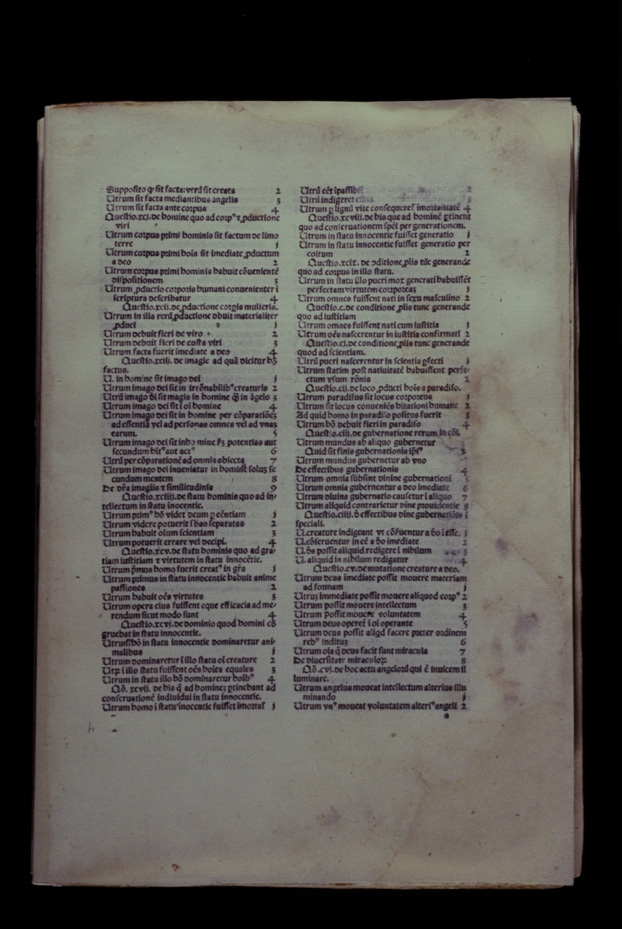 Supposito ꝙ sit facta: vtrũ sit creata 2
Utrum sit facta mediantibus angelis 3
Utrum sit facta ante corpus 4
Questio.xcj. de homine quo ad corpꝰ ꝓductione
viri
Utrum corpus primi hominis sit factum de limo
terre j
Utrum corpus primi hoĩs sit ĩmediate ꝓductum
a deo 2
Utrum corpus primi hominis habuit cõuenientẽ
dispositionem 3
Utrum ꝓductio corporis humani conuenienter ĩ
scriptura describatur 4
Questio.xcij. de ꝓductione corꝑis mulieris.
Utrum in illa rerũ ꝓductione debuit materialiter
ꝓduci j
Utrum debuit fieri de viro 2
Utrum debuit fieri de costa viri 3
Utrum facta fuerit ĩmediate a deo 4
Questio.xciij. de imagĩe ad quã dicitur hõ
factus.
U. in homine sit imago dei j
Utrum imago dei sit in irrõnabilibꝰ creaturis 2
Utrũ imago dei sit magis in homine ꝗ̃ in ãgelo 3
Utrum imago dei sit ĩ oĩ homine 4
Utrum imago dei sit in homine per cõparationẽ
ad essentiã vel ad personas omnes vel ad vnaʒ
earum. 5
Utrum imago dei sit in homine ẜm potentias aut
secundum hĩtꝰ aut actꝰ 6
Utrũ per cõparationẽ ad omnia obiecta 7
Utrum imago dei inueniatur in homine solũ se
cundum mentem 8
De dr̃a imaginis ⁊ similitudinis 9
Questio.xciiij. de statu hominis quo ad in
tellectum in statu innocentie.
Utrum primꝰ hõ videt deum ꝑ eẽntiam j
Utrum videre potuerit sbas separatas 2
Utrum habuit oĩum scientiam 3
Utrum potuerit errare vel decipi. 4
Questio.xcv. de statu hominis quo ad gra
tiam iustitiam ⁊ virtutem in statu innocẽtie.
Utrum pᷓmus homo fuerit creatꝰ in gr̃a j
Utrum primus in statu innocentie habuit anime
passiones 2
Utrum habuit oẽs virtutes 3
Utrum opera eius fuissent eque efficacia ad me
rendum sicut modo sunt 4
Questio.xcvi. de dominio quod homini cõ
gruebat in statu innocentie.
Utrum hõ in statu innocentie dominaretur ani
malibus j
Utrum dominaretur ĩ illo statu oĩ creature 2
Utrum ĩ illo statu fuissent oẽs hoĩes equales 3
Utrum in statu illo hõ dominaretur hoĩbꝰ 4
Qõ. xcvij. de his ꝗ ad hominẽ ꝑtinebant ad
conseruationẽ indiuidui in statu innocentie.
Utrum homo ĩ statu ĩnocentie fuisset ĩmortaľ j
Utrũ eẽt ĩpassibľ 2
Utrũ indigeret cibis 3
Utrum ꝑ lignũ vite consequereť ĩmortalitatẽ 4
Questio.xcviij. de his que ad hominẽ ꝑtinent
quo ad conseruationem spẽi per generationem.
Utrum in statu innocentie fuisset generatio j
Utrum in statu innocentie fuisset generatio per
coitum 2
Questio.xcix. de ↄditione ꝓlis tũc generande
quo ad corpus in illo statu.
Utrum in statu illo pueri mox generati habuissẽt
perfectam virtutem corpoream j
Utrum omnes fuissent nati in sexu masculino 2
Questio.c. de conditione ꝓlis tunc generande
quo ad iustitiam
Utrum omnes fuissent nati cum iustitia j
Utrum oẽs nascerentur in iustitia confirmati 2
Questio.cj. de conditione ꝓlis tunc generande
quod ad scientiam.
Utrũ pueri nascerentur in scientia ꝑfecti j
Utrum statim post natiuitatẽ habuissent perfe
ctum vsum rõnis 2
Questio.cij. de loco ꝓduct̃i hoĩs ĩ paradiso.
Utrum paradisus sit locus corporeus j
Utrum sit locus conueniẽs hitationi humane 2
Ad quid homo in paradiso positus fuerit 3
Utrum hõ debuit fieri in paradiso 4
Questio.ciij. de gubernatione rerum in cõi.
Utrum mundus ab aliquo gubernetur j
Quid sit finis gubernatiõis ip̃iꝰ 2
Utrum mundus gubernetur ab vno 3
De effectibus gubernationis 4
Utrum omnia subsint diuine gubernationi 5
Utrum omnia gubernentur a deo ĩmediate 6
Utrum diuina gubernatio casseťur ĩ aliquo 7
Utrum aliquid contrarietur diuine prouidentie 8
Questio.ciiij. de effectibus diuine gubernatiõis ĩ
speciali.
U. creature indigeant vt cõseruentur a deo ĩ esse. j
U. cõseruentur in eẽ a deo ĩmediate 2
U. deus possit aliquid redigere ĩ nihilum 3
U. aliquid in nihilum redigatur 4
Questio.cv. de mutatione creature a deo.
Utrum deus ĩmediate possit mouere materiam
ad formam j
Utrum immediate possit mouere aliquod corpꝰ 2
Utrum possit mouere intellectum 3
Utrum possit mouere voluntatem 4
Utrum deus opereť ĩ oĩ operante 5
Utrum deus possit aliqd facere preter ordinem
rebꝰ inditus 6
Utrum oĩa ꝗ̃ deus facit sunt miracula 7
De diuersitate miraculoꝝ 8
Qõ. cvi. de hoc actu angeloꝝ qui ẽ inuicem il
luminare.
Utrum angelus moueat intellectum alterius illu
minando j
Utrum vnꝰ moueat voluntatem alteriꝰ angeli 2